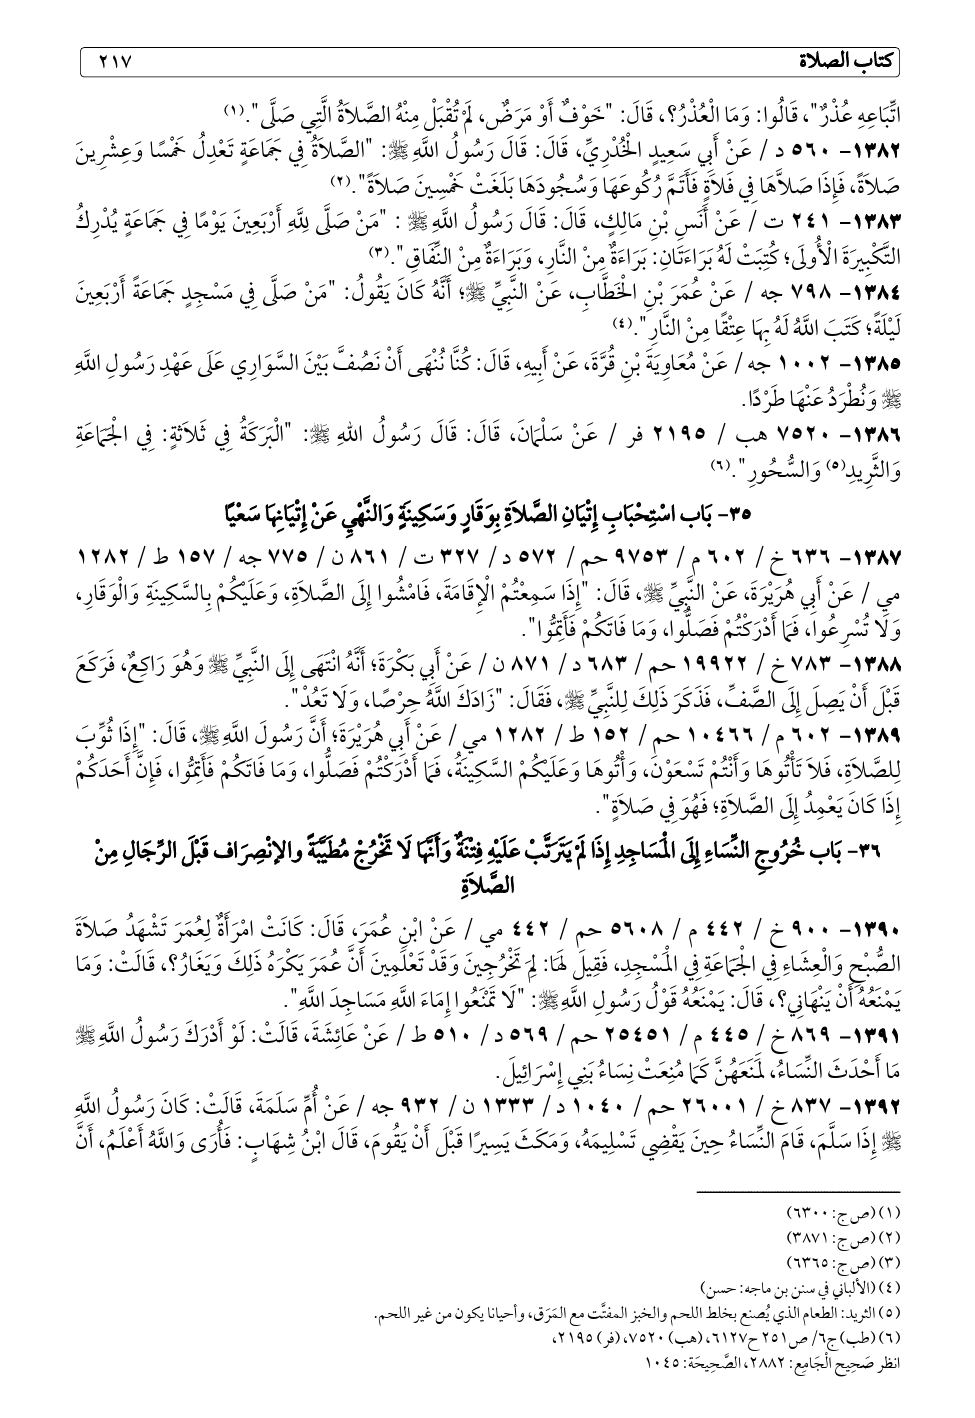 كتاب الصلاة ٢١٧
اتِّبَاعِهِ عُذْرٌ"، قَالُوا: وَمَا الْعُذْرُ؟، قَالَ: "خَوْفٌ أَوْ مَرَضٌ، لَمْ تُقْبَلْ مِنْهُ الصَّلاَةُ الَّتِي صَلَّى".(١)
١٣٨٢- ٥٦٠ د / عَنْ أَبِي سَعِيدٍ الْخُدْرِيِّ، قَالَ: قَالَ رَسُولُ اللَّهِ ﷺ: "الصَّلاَةُ فِي جَمَاعَةٍ تَعْدِلُ خَمْسًا وَعِشْرِينَ
صَلاَةً، فَإِذَا صَلاَّهَا فِي فَلاَةٍ فَأَتَمَّ رُكُوعَهَا وَسُجُودَهَا بَلَغَتْ خَمْسِينَ صَلاَةً".(٢)
١٣٨٣- ٢٤١ ت / عَنْ أَنَسِ بْنِ مَالِكٍ، قَالَ: قَالَ رَسُولُ اللَّهِ ﷺ : "مَنْ صَلَّى لِلَّهِ أَرْبَعِينَ يَوْمًا فِي جَمَاعَةٍ يُدْرِكُ
التَّكْبِيرَةَ الْأُولَى؛ كُتِبَتْ لَهُ بَرَاءَتَانِ: بَرَاءَةٌ مِنْ النَّارِ، وَبَرَاءَةٌ مِنْ النِّفَاقِ".(٣)
١٣٨٤- ٧٩٨ جه / عَنْ عُمَرَ بْنِ الْخَطَّابِ، عَنْ النَّبِيِّ ﷺ؛ أَنَّهُ كَانَ يَقُولُ: "مَنْ صَلَّى فِي مَسْجِدٍ جَمَاعَةً أَرْبَعِينَ
لَيْلَةً؛ كَتَبَ اللَّهُ لَهُ بِهَا عِتْقًا مِنْ النَّارِ".(٤)
١٣٨٥- ١٠٠٢ جه / عَنْ مُعَاوِيَةَ بْنِ قُرَّةَ، عَنْ أَبِيهِ، قَالَ: كُنَّا نُنْهَى أَنْ نَصُفَّ بَيْنَ السَّوَارِي عَلَى عَهْدِ رَسُولِ اللَّهِ
ﷺ وَنُطْرَدُ عَنْهَا طَرْدًا.
١٣٨٦- ٧٥٢٠ هب / ٢١٩٥ فر / عَنْ سَلْمَانَ، قَالَ: قَالَ رَسُولُ اللهِ ﷺ: "الْبَرَكَةُ فِي ثَلاَثَةٍ: فِي الْجَمَاعَةِ
وَالثَّرِيدِ(٥) وَالسُّحُورِ".(٦)
٣٥- بَاب اسْتِحْبَابِ إِتْيَانِ الصَّلاَةِ بِوَقَارٍ وَسَكِينَةٍ وَالنَّهْيِ عَنْ إِتْيَانِهَا سَعْيًا
١٣٨٧- ٦٣٦ خ / ٦٠٢ م / ٩٧٥٣ حم / ٥٧٢ د / ٣٢٧ ت / ٨٦١ ن / ٧٧٥ جه / ١٥٧ ط / ١٢٨٢
مي / عَنْ أَبِي هُرَيْرَةَ، عَنْ النَّبِيِّ ﷺ، قَالَ: "إِذَا سَمِعْتُمْ الْإِقَامَةَ، فَامْشُوا إِلَى الصَّلاَةِ، وَعَلَيْكُمْ بِالسَّكِينَةِ وَالْوَقَارِ،
وَلَا تُسْرِعُوا، فَمَا أَدْرَكْتُمْ فَصَلُّوا، وَمَا فَاتَكُمْ فَأَتِمُّوا".
١٣٨٨- ٧٨٣ خ / ١٩٩٢٢ حم / ٦٨٣ د / ٨٧١ ن / عَنْ أَبِي بَكْرَةَ؛ أَنَّهُ انْتَهَى إِلَى النَّبِيِّ ﷺ وَهُوَ رَاكِعٌ، فَرَكَعَ
قَبْلَ أَنْ يَصِلَ إِلَى الصَّفِّ، فَذَكَرَ ذَلِكَ لِلنَّبِيِّ ﷺ، فَقَالَ: "زَادَكَ اللَّهُ حِرْصًا، وَلَا تَعُدْ".
١٣٨٩- ٦٠٢ م / ١٠٤٦٦ حم / ١٥٢ ط / ١٢٨٢ مي / عَنْ أَبِي هُرَيْرَةَ؛ أَنَّ رَسُولَ اللَّهِ ﷺ، قَالَ: "إِذَا ثُوِّبَ
لِلصَّلاَةِ، فَلاَ تَأْتُوهَا وَأَنْتُمْ تَسْعَوْنَ، وَأْتُوهَا وَعَلَيْكُمْ السَّكِينَةُ، فَمَا أَدْرَكْتُمْ فَصَلُّوا، وَمَا فَاتَكُمْ فَأَتِمُّوا، فَإِنَّ أَحَدَكُمْ
إِذَا كَانَ يَعْمِدُ إِلَى الصَّلاَةِ؛ فَهُوَ فِي صَلاَةٍ".
٣٦- بَاب خُرُوجِ النِّسَاءِ إِلَى الْمَسَاجِدِ إِذَا لَمْ يَتَرَتَّبْ عَلَيْهِ فِتْنَةٌ وَأَنَّهَا لَا تَخْرُجْ مُطَيَّبَةً والاِنْصِرَاف قَبْلَ الرِّجَالِ مِنْ
الصَّلاَةِ
١٣٩٠- ٩٠٠ خ / ٤٤٢ م / ٥٦٠٨ حم / ٤٤٢ مي / عَنْ ابْنِ عُمَرَ، قَالَ: كَانَتْ امْرَأَةٌ لِعُمَرَ تَشْهَدُ صَلاَةَ
الصُّبْحِ وَالْعِشَاءِ فِي الْجَمَاعَةِ فِي الْمَسْجِدِ، فَقِيلَ لَهَا: لِمَ تَخْرُجِينَ وَقَدْ تَعْلَمِينَ أَنَّ عُمَرَ يَكْرَهُ ذَلِكَ وَيَغَارُ؟، قَالَتْ: وَمَا
يَمْنَعُهُ أَنْ يَنْهَانِي؟، قَالَ: يَمْنَعُهُ قَوْلُ رَسُولِ اللَّهِ ﷺ: "لَا تَمْنَعُوا إِمَاءَ اللَّهِ مَسَاجِدَ اللَّهِ".
١٣٩١- ٨٦٩ خ / ٤٤٥ م / ٢٥٤٥١ حم / ٥٦٩ د / ٥١٠ ط / عَنْ عَائِشَةَ، قَالَتْ: لَوْ أَدْرَكَ رَسُولُ اللَّهِ ﷺ
مَا أَحْدَثَ النِّسَاءُ، لَمَنَعَهُنَّ كَمَا مُنِعَتْ نِسَاءُ بَنِي إِسْرَائِيلَ.
١٣٩٢- ٨٣٧ خ / ٢٦٠٠١ حم / ١٠٤٠ د / ١٣٣٣ ن / ٩٣٢ جه / عَنْ أُمِّ سَلَمَةَ، قَالَتْ: كَانَ رَسُولُ اللَّهِ
ﷺ إِذَا سَلَّمَ، قَامَ النِّسَاءُ حِينَ يَقْضِي تَسْلِيمَهُ، وَمَكَثَ يَسِيرًا قَبْلَ أَنْ يَقُومَ، قَالَ ابْنُ شِهَابٍ: فَأُرَى وَاللَّهُ أَعْلَمُ، أَنَّ
(١) (ص ج: ٦٣٠٠)
(٢) (ص ج: ٣٨٧١)
(٣) (ص ج: ٦٣٦٥)
(٤) (الألباني في سنن بن ماجه: حسن)
(٥) الثريد: الطعام الذي يُصنع بخلط اللحم والخبز المفتَّت مع المَرَق، وأحيانا يكون من غير اللحم.
(٦) (طب) ج٦/ ص٢٥١ ح٦١٢٧، (هب) ٧٥٢٠، (فر) ٢١٩٥،
انظر صَحِيح الْجَامِع: ٢٨٨٢، الصَّحِيحَة: ١٠٤٥